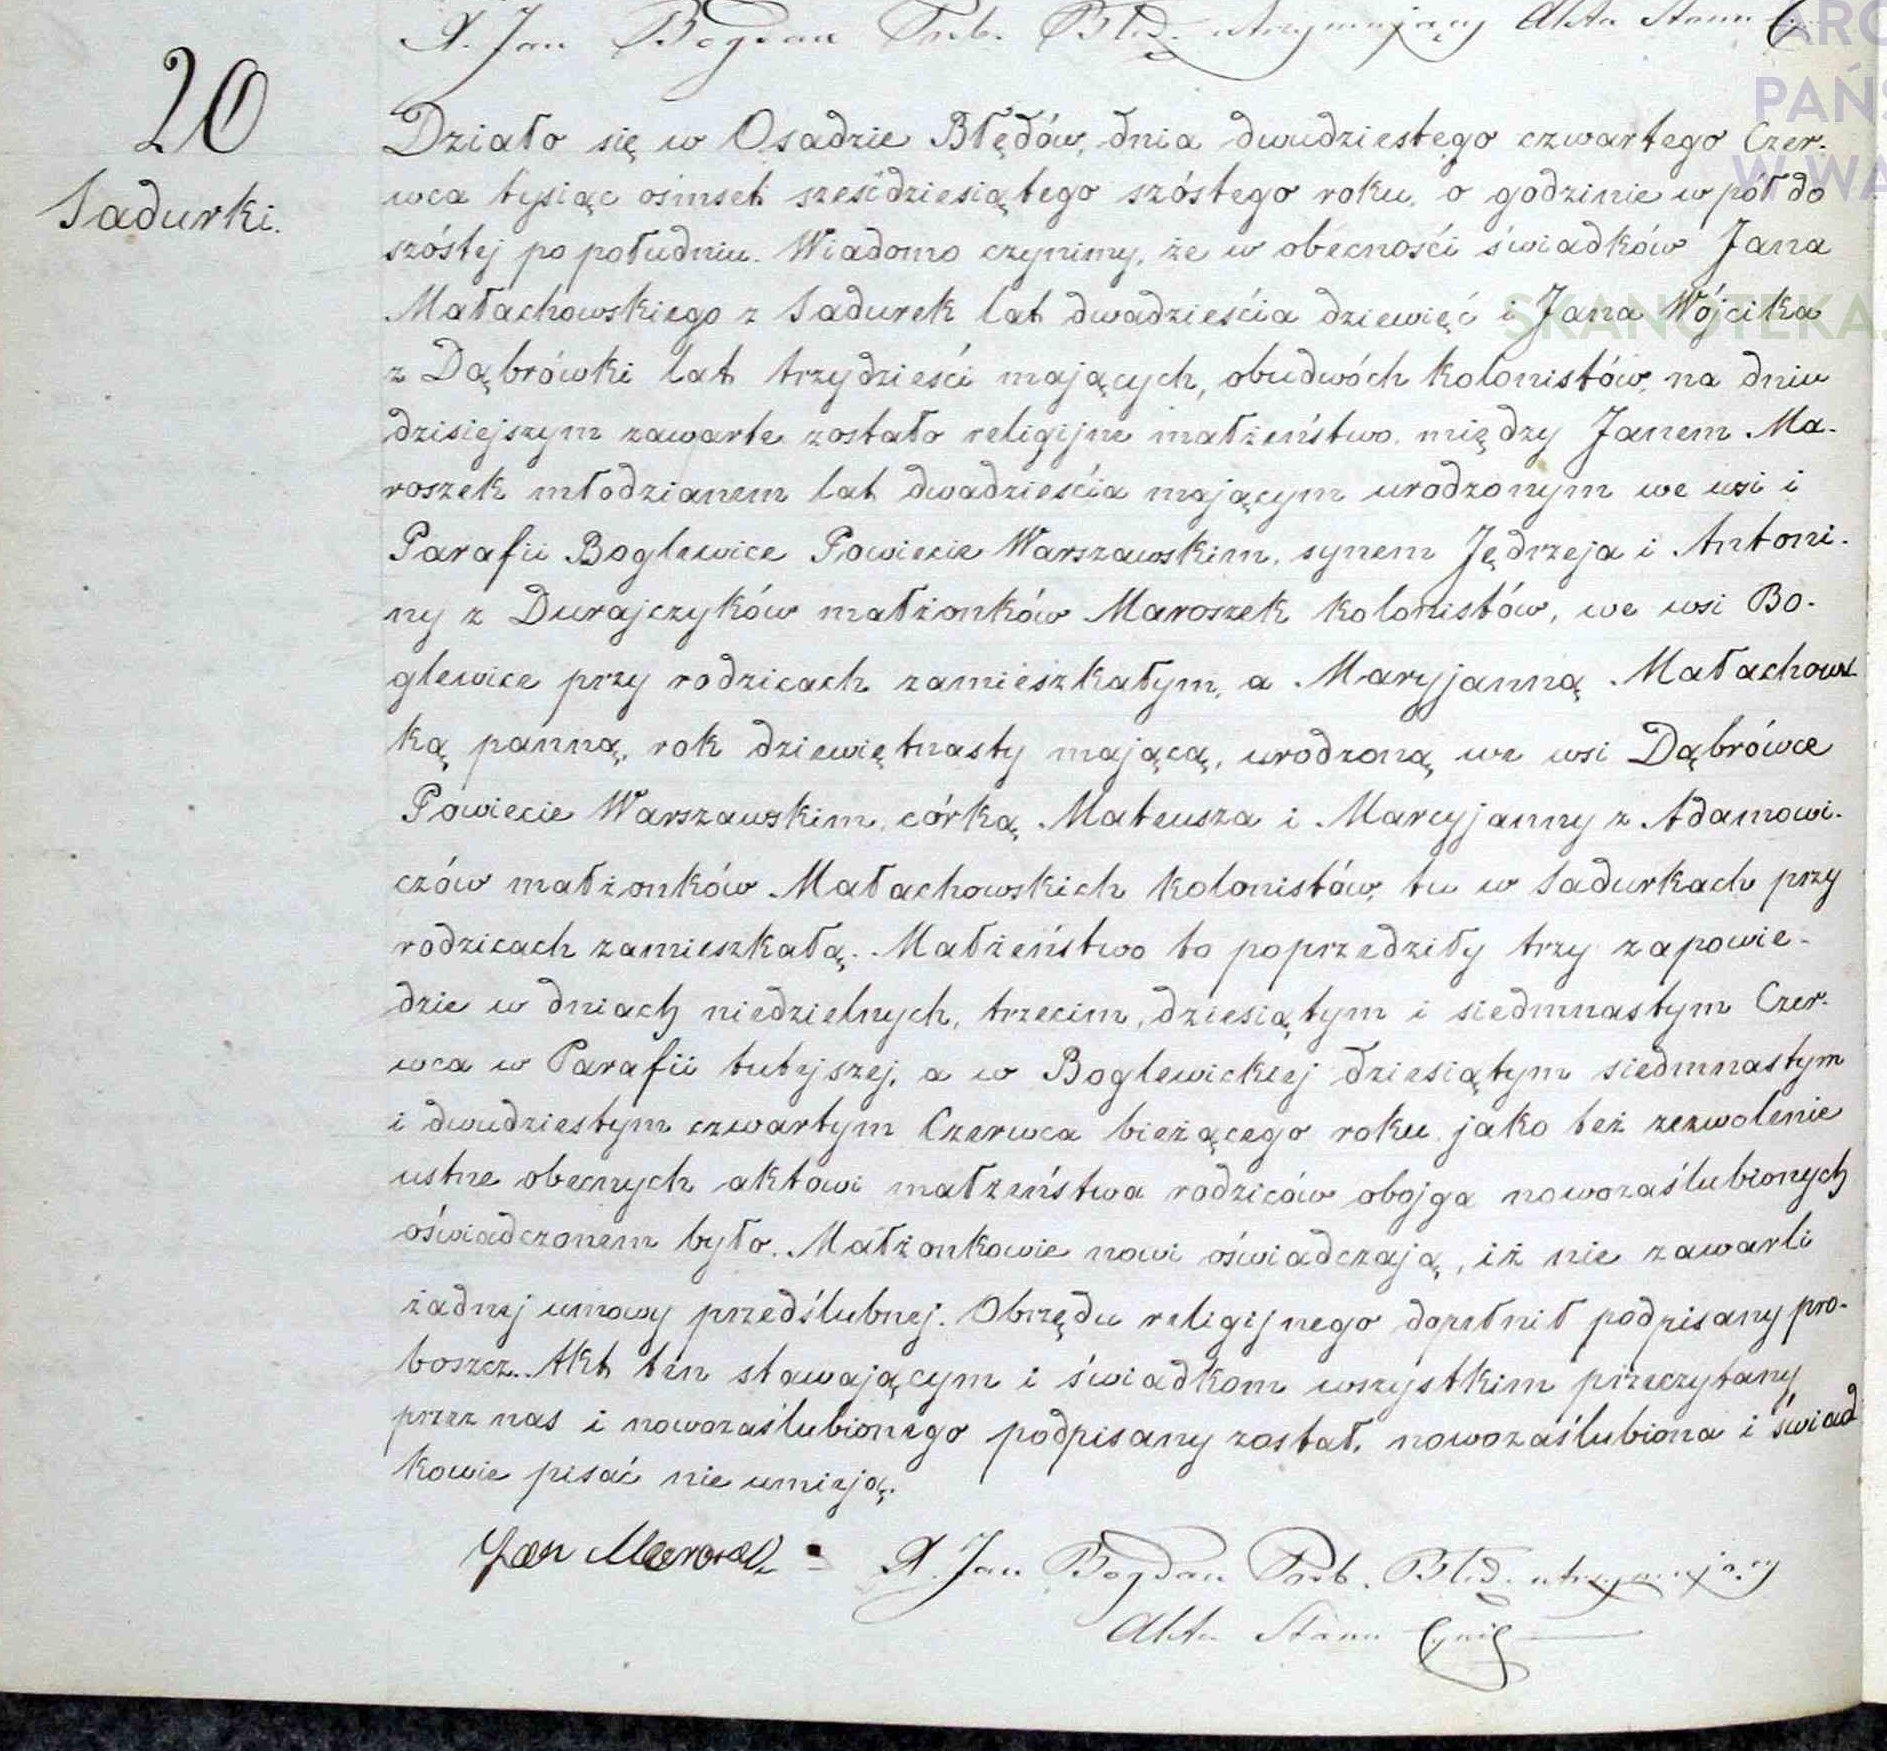 X. Jan Bogdan Prob. Błęd. utrzymujący Akta Stanu
20
Sadurki.
Działo się w Osadzie Błędów, dnia dwudziestego czwartego Czer-
wca tysiąc ośmset sześćdziesiątego szóstego roku, o godzinie w pół do
szóstej po południu. Wiadomo czynimy, że w obecności świadków Jana
Małachowskiego z Sadurek lat dwadzieścia dziewięć i Jana Wójcika
z Dąbrówki lat trzydzieści mających, obudwóch kolonistów, na dniu
dzisiejszym zawarte zostało religijne małżeństwo między Janem Ma-
roszek młodzianem lat dwadzieścia mającym urodzonym we wsi i
Parafii Boglewice Powiecie Warszawskim, synem Jędrzeja i Antoni-
ny z Durajczyków małżonków Maroszek kolonistów, we wsi Bo-
glewice przy rodzicach zamieszkałym, a Maryjanną Małachows-
ką panną, rok dziewiętnasty mającą, urodzoną we wsi Dąbrówce
Powiecie Warszawskim, córką Mateusza i Maryjanny z Adamowi-
czów małżonków Małachowskich kolonistów, tu w Sadurkach przy
rodzicach zamieszkałą. Małżeństwo to poprzedziły trzy zapowie-
dzie w dniach niedzielnych, trzecim, dziesiątym i siedmnastym Czer-
wca w Parafii tutejszej, a w Boglewickiej dziesiątym siedmnastym
i dwudziestym czwartym Czerwca bieżącego roku jako też zezwolenie
ustne obecnych aktowi małżeństwa rodziców obojga nowozaślubionych
oświadczonem było. Małżonkowie nowi oświadczają, iż nie zawarli
żadnej umowy przedślubnej. Obrzędu religijnego dopełnił podpisany pro-
boszcz. Akt ten stawającym i świadkom wszystkim przeczytany
przez nas i nowozaślubionego podpisany został, nowozaślubiona i świad
kowie pisać nie umieją.
Jan Maroszek X. Jan Bogdan Prob. Błęd. utrzymujący
Akta Stanu Cywil
SKANOTEKA.